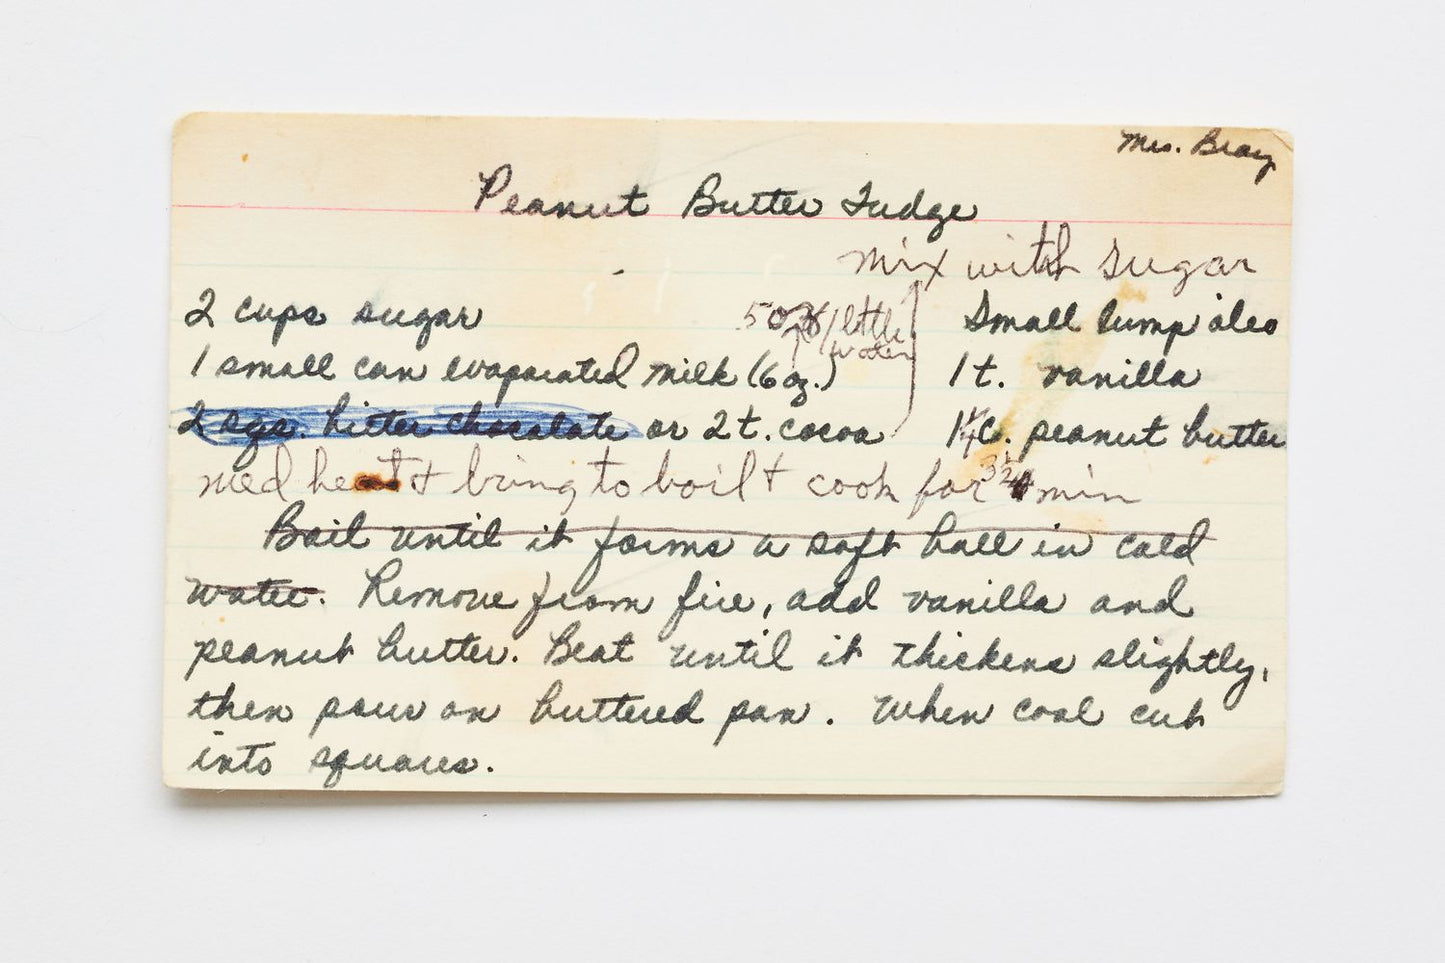 Mrs. Bray
Peanut Butter Fudge
mix with sugar
2 cups sugar 5 oz little water Small lump oleo
1 small can evaporated milk (6 oz.) 1 t. vanilla
2 sqs. bitter chocolate or 2 t. cocoa 1/4 C. peanut butter
med heat + bring to boil + cook for 3 1/2 min
Boil until it forms a soft ball in cold
water. Remove from fire, add vanilla and
peanut butter. Beat until it thickens slightly,
then pour on buttered pan. When cool cut
into squares.